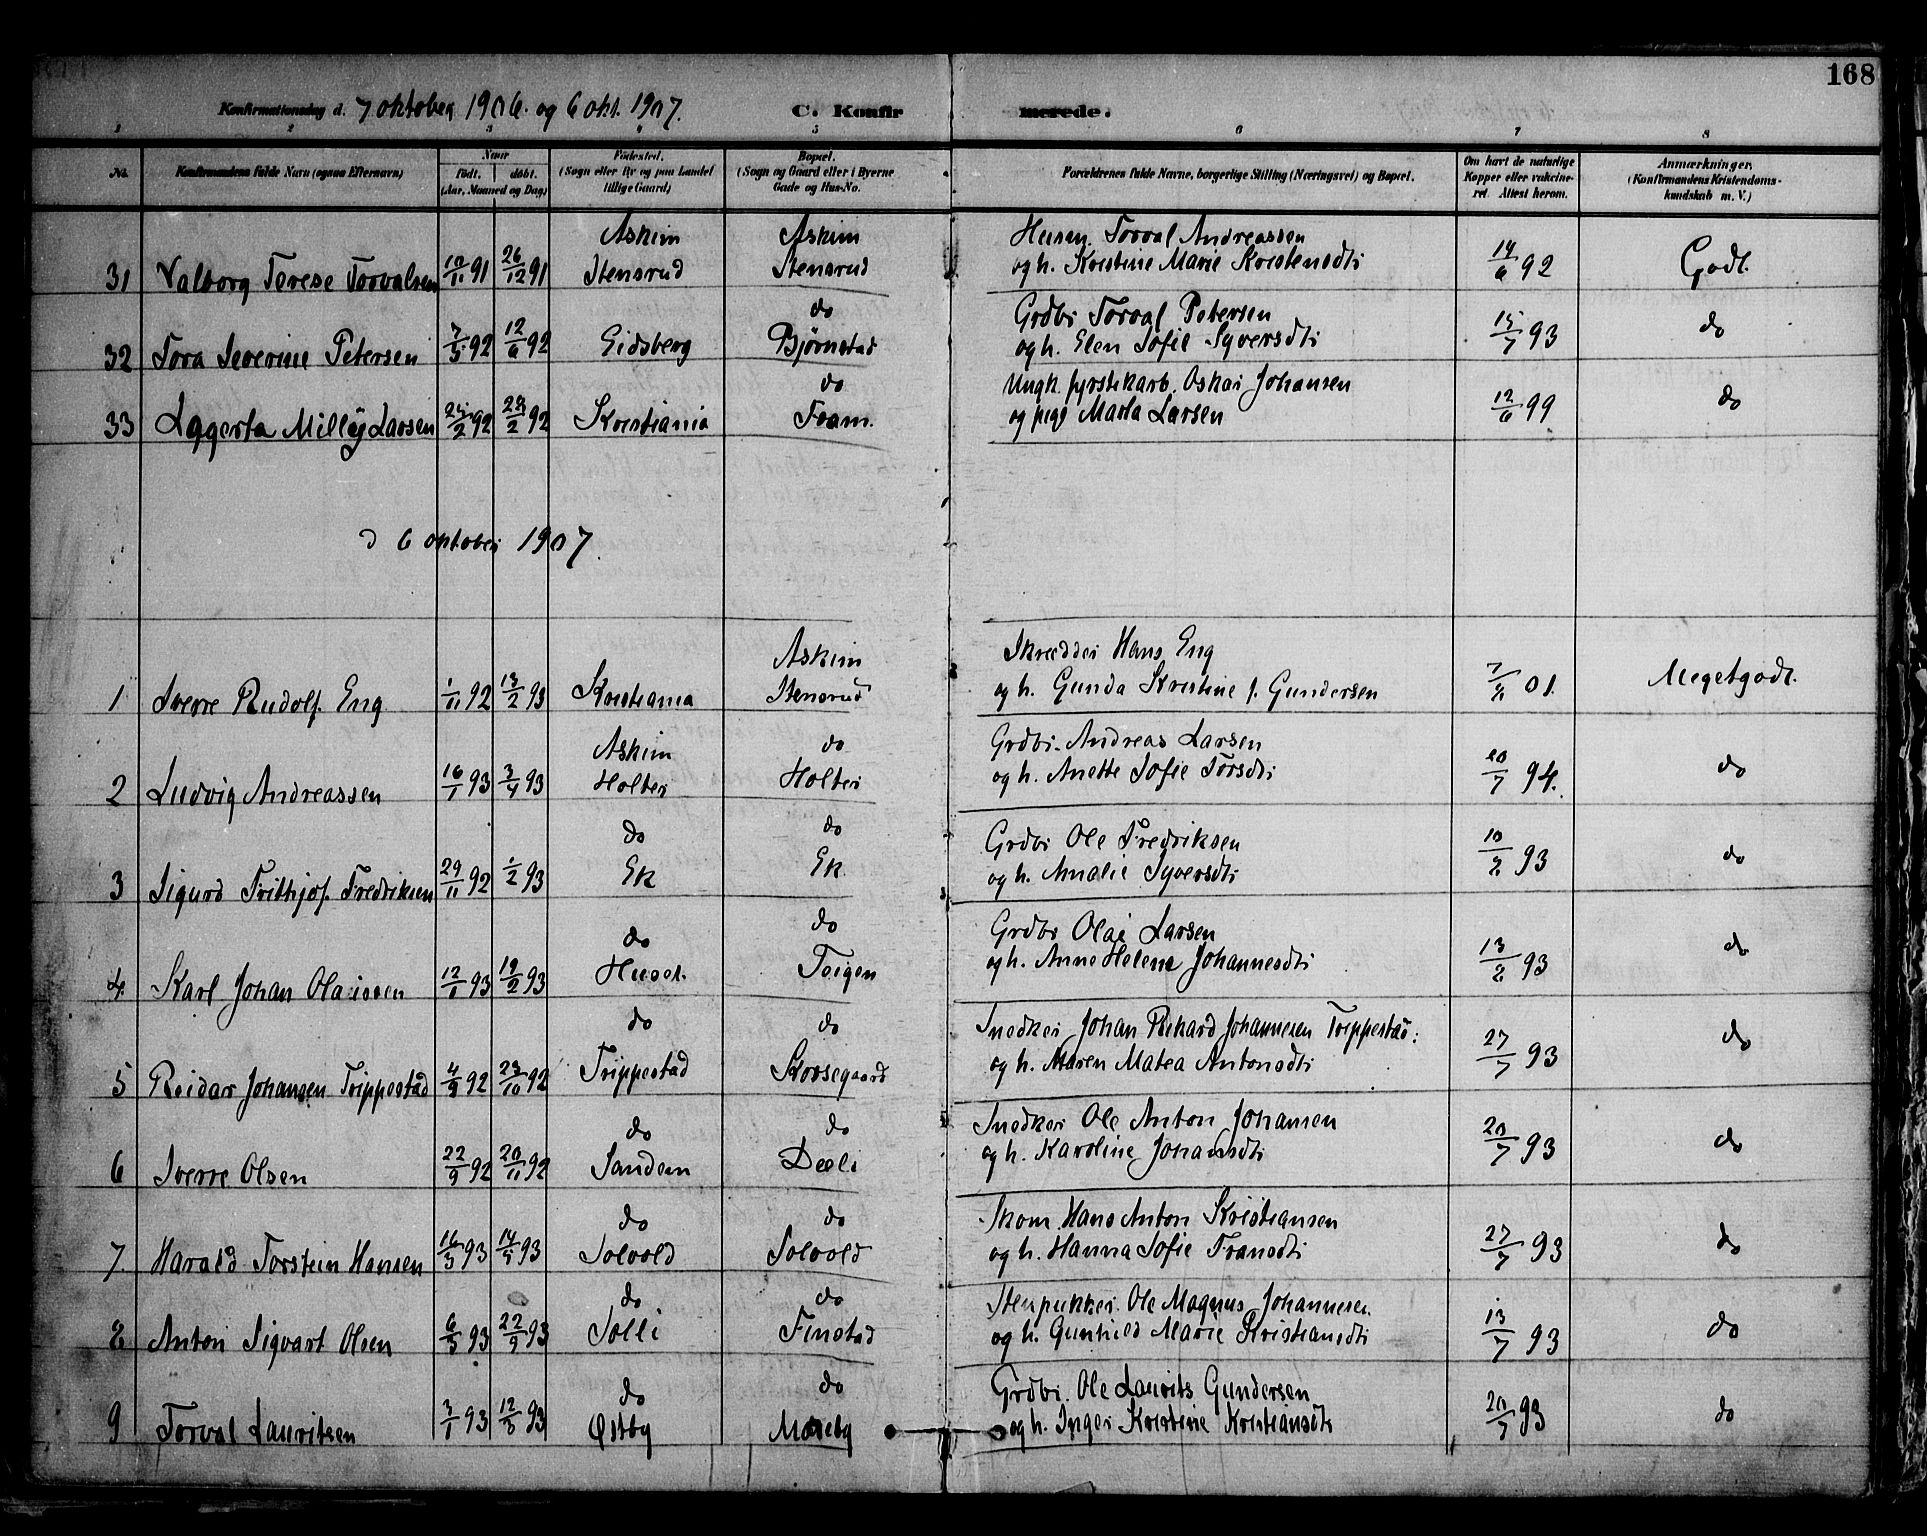 168
Konfirmationsdag d. 7 oktober 1906. og 6 okt. 1907. C. Konfirmerede.
1 2 3 4 5 6 7 8
No. Konfirmandens fulde Navn (ogsaa Efternavn) Naar født. døbt. (Aar, Maaned og Dag) Fødested. (Sogn eller By og paa Landet tillige Gaard) Bopæl. (Sogn og Gaard eller i Byerne Gade og Hus-No. Forældrenes fulde Navne, borgerlige Stilling (Næringsvei) og Bopæl. Om havt de naturlige Kopper eller vaccineret. Attest herom. Anmærkninger. (Konfirmandens Kristendomskundskab m. V.)
Askim Askim Husm. Torval Andreassen
31 Valborg Terese Torvalsen 10/11 91 26/12 91 Stensrud Stensrud og h. Kristine Marie Kristensdtr 14/6 92 Godt.
do Grdbr Torval Petersen
32 Tora Severine Petersen 7/5 92 12/6 92 Eidsberg Bjørnstad og h. Elen Sofie Syversdtr 15/7 93 do
do Ungk. fyrstikarb. Oskar Johansen
33 Laggerta Milly Larsen 2/2 92 Kristiania Fram. og pige Marta Larsen 12/6 99 do
d 6 oktober 1907.
Askim Skrædder Hans Eng
1 Sverre Rudolf Eng 1/11 92 13/2 93 Kristiania Stensrud og h. Gunda Kristine f. Gundersen 01. Megetgodt.
Askim do Grdbr. Andreas Larsen
2 Ludvig Andreassen 16/1 93 3/4 93 Holter Holter og h. Anette Sofie Torsdtr 20/7 94. do
do do Grdbr Ole Fredriksen
3 Sigurd Frithjof Fredriksen 29/11 92 1/2 93 Ek Ek og h. Amalie Syversdtr 93 do
do do Grdbr Olai Larsen
4. Karl Johan Olaissen 12/1 93 19/2 93 Huset. Toigen og h. Anne Helene Johannesdtr 93 do
do do Snedker Johan Rikard Johannesen Trippestad:
5 Reidar Johansen Trippestad 4/9 92 23/10 92 Trippestad Korsegaard og h. Maren Matea Antonsdtr 27/7 93 do
do do Snedker Ole Anton Johansen
6 Sverre Olsen 22/9 92 20/11 92 Sandem Deeli og h. Karoline Johansdtr 20/7 93 do
do do Skom. Hans Anton Kristiansen
7. Harald Torstein Hansen 16/3 93 14/5 93 Solvold Solvold og h. Hanna Sofie Fransdtr 27/7 93 do
do do Stenpukker. Ole Magnus Johannesen
8 Anton Sigvart Olsen 6/5 93 22/ 93 Solli Finstad og h. Gunhild Marie Kristiansdtr 13/7 93 do
do do Grdbr. Ole Laurits Gundersen
9 Torval Lauritsen 3/1 93 12/3 93 Østby Moseby og h. Inger Kristine Kristiansdtr 20/7 93 do